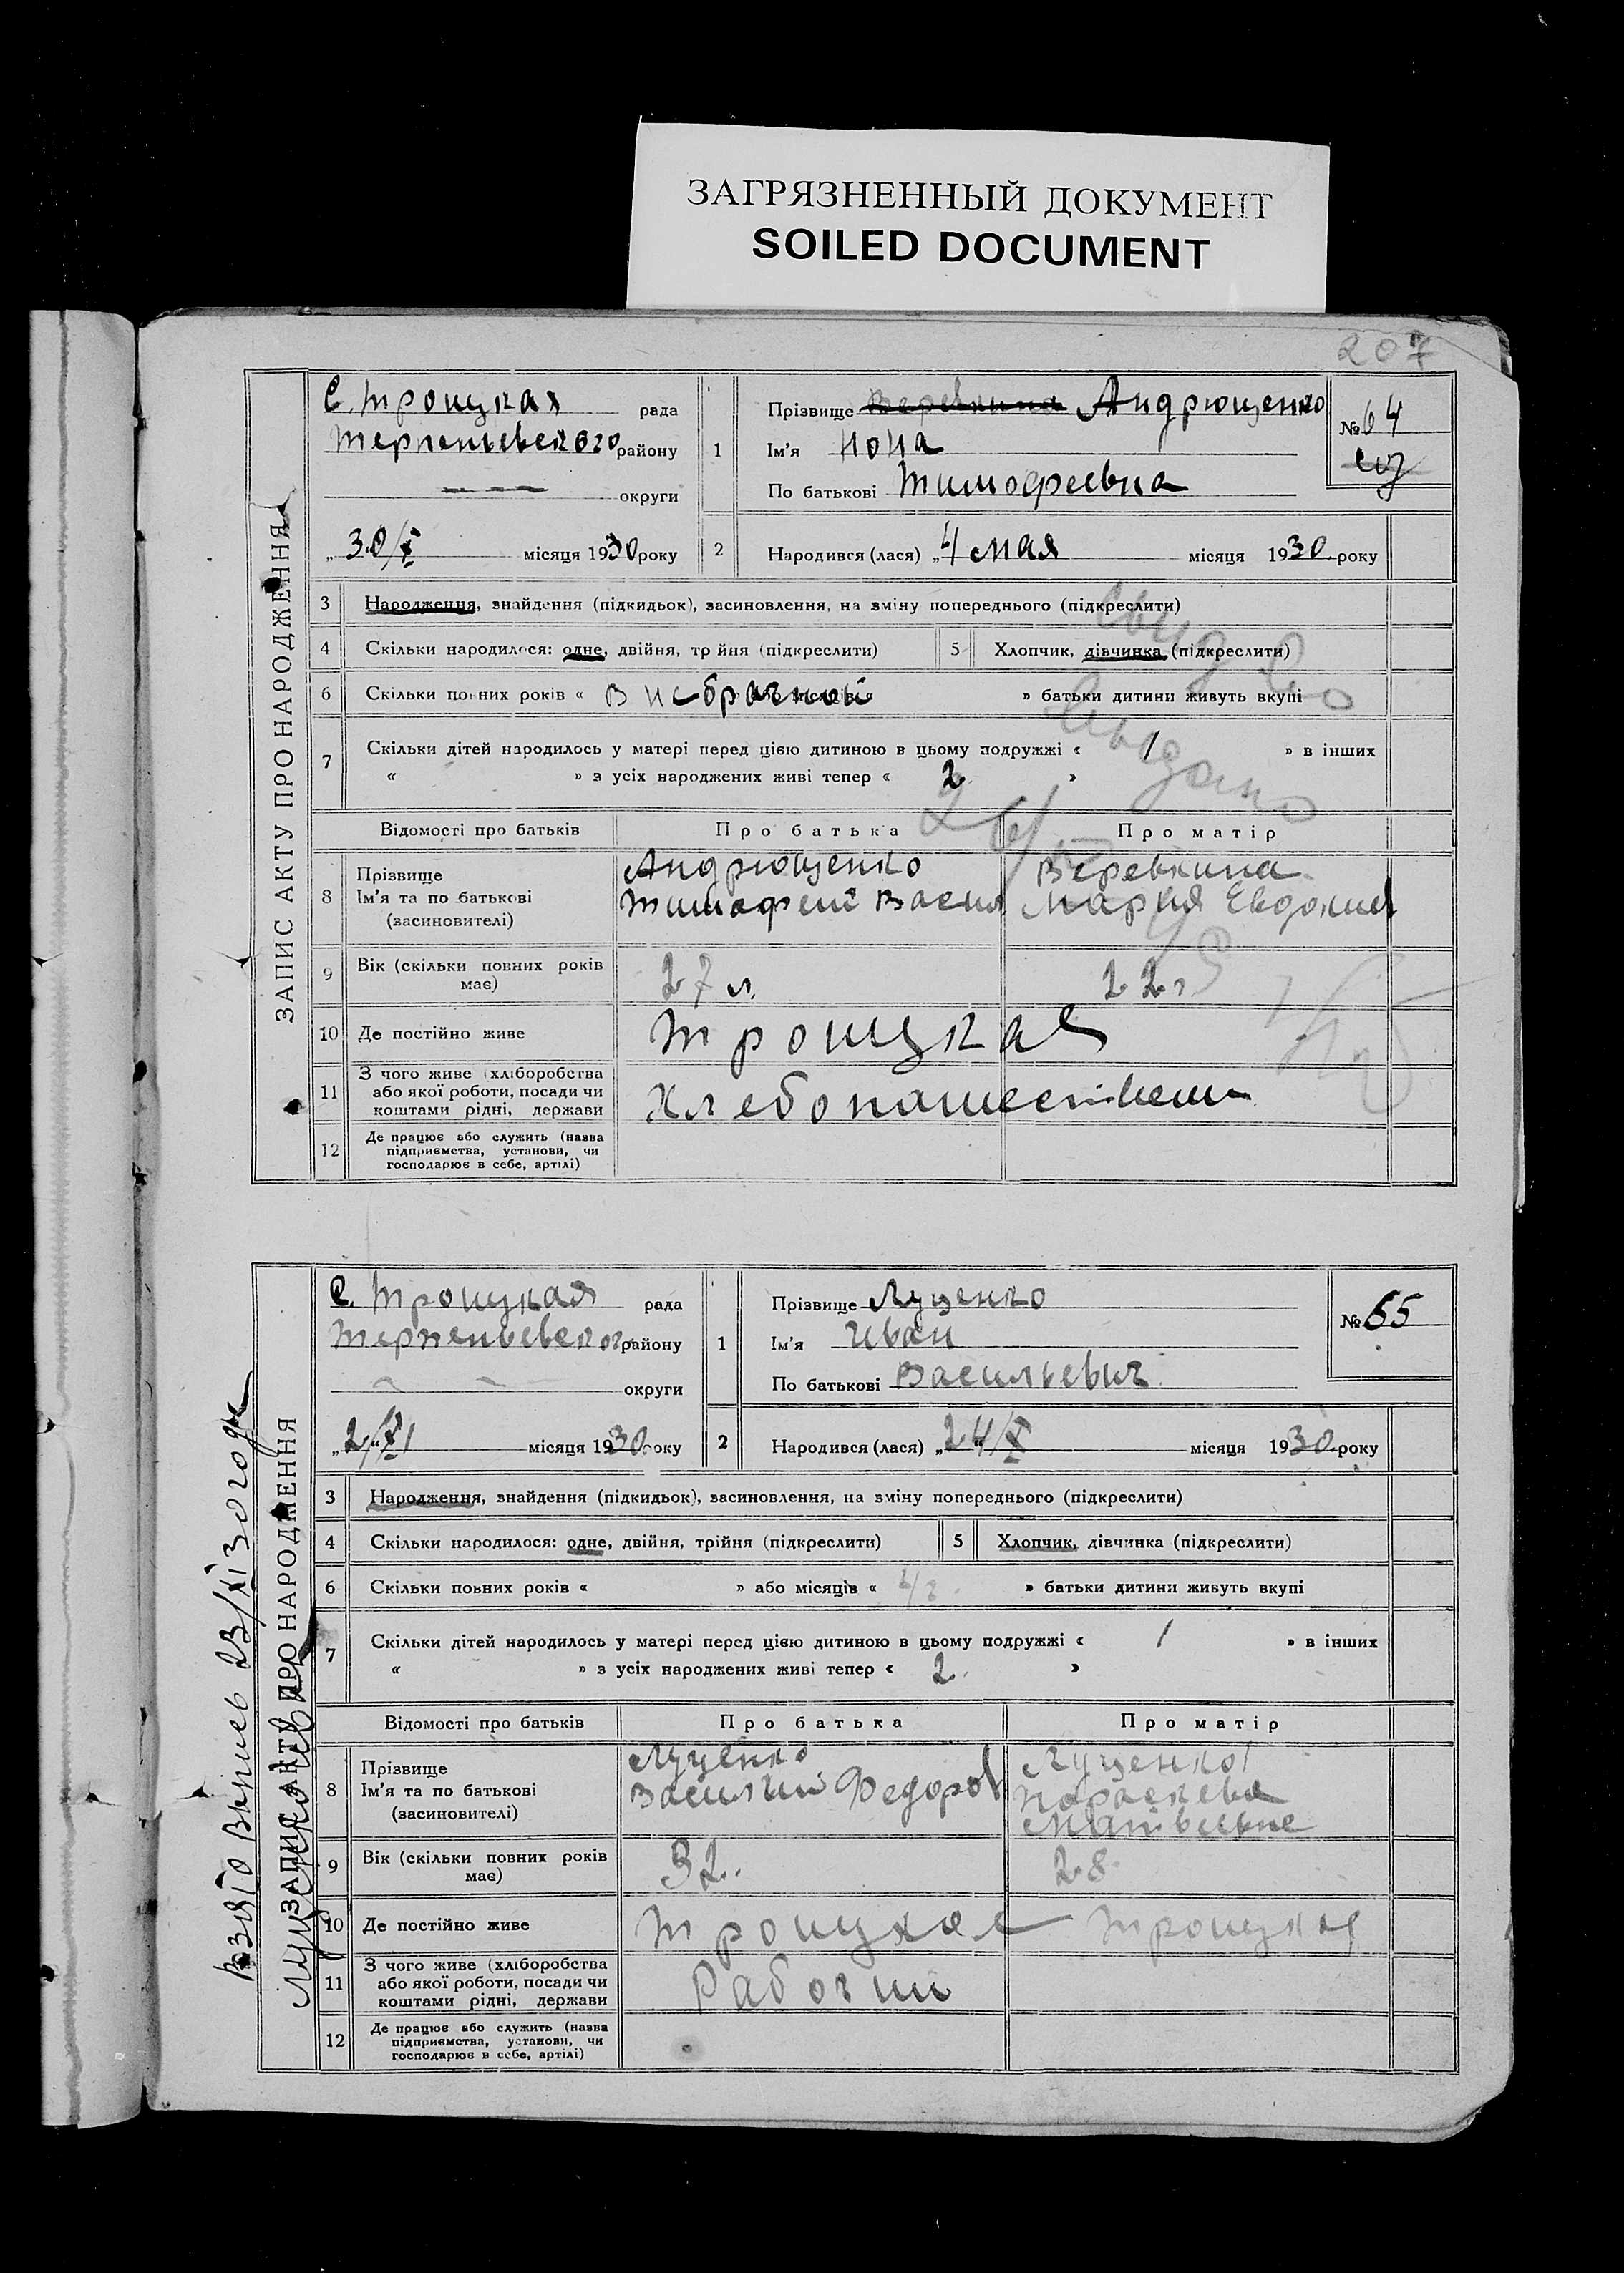 ЗАГРЯЗНЕННЫЙ ДОКУМЕНТ
SOILED DOCUMENT
207
ЗАПИС АКТУ ПРО НАРОДЖЕННЯ
С. Троицкая рада
Терпеньевского району
округи
„ 30/X місяця 1930 року
1 Прізвище Веревкина Андрющенко
Ім'я Нона
По батькові Тимофеевна
№ 64
2 Народився (лася) „4 мая місяця 1930 року
3 Народження, знайдення (підкидьок), засиновлення, на зміну попереднього (підкреслити)
4 Скільки народилося: одне, двійня, тр йня (підкреслити) 5 Хлопчик, дівчинка (підкреслити)
6 Скільки повних років « В небрачной » батьки дитини живуть вкупі
7 Скільки дітей народилось у матері перед цією дитиною в цьому подружжі « 1 » в інших
« » з усіх народжених живі тепер « 2 »
Выдано
Відомості про батьків Про батька Про матір
8 Прізвище Андрющенко Веревкина
Ім'я та по батькові Тимофей Васил Мария Евдоким
(засиновителі)
9 Вік (скільки повних років має) 27 л. 22 г
10 Де постійно живе Троицкая
11 З чого живе (хліборобства
або якої роботи, посади чи Хлебопашеством
коштами рідні, держави
12 Де працює або служить (назва
підприємства, установи, чи
господарює в себе, артілі)
ЗАПИС АКТУ ПРО НАРОДЖЕННЯ
Взято Выпись 23/XI 30 года
С. Троицкая рада
Терпеньевског району
округи
„2/XI місяця 1930 року
1 Прізвище Луценко
Ім'я Иван
По батькові Васильевич
№ 65
2 Народився (лася) „24/X місяця 1930 року
3 Народження, знайдення (підкидьок), засиновлення, на зміну попереднього (підкреслити)
4 Скільки народилося: одне, двійня, трійня (підкреслити) 5 Хлопчик, дівчинка (підкреслити)
6 Скільки повних років « » або місяців « 4 г. » батьки дитини живуть вкупі
7 Скільки дітей народилось у матері перед цією дитиною в цьому подружжі « 1 » в інших
« » з усіх народжених живі тепер « 2 »
Відомості про батьків Про батька Про матір
8 Прізвище Луценко Луценко
Ім'я та по батькові Василий Федоров Параскева
(засиновителі) Матвеевне
9 Вік (скільки повних років має) 32. 28
10 Де постійно живе Троицкае Троицкая
11 З чого живе (хліборобства
або якої роботи, посади чи Рабочий
коштами рідні, держави
12 Де працює або служить (назва
підприємства, установи, чи
господарює в себе, артілі)